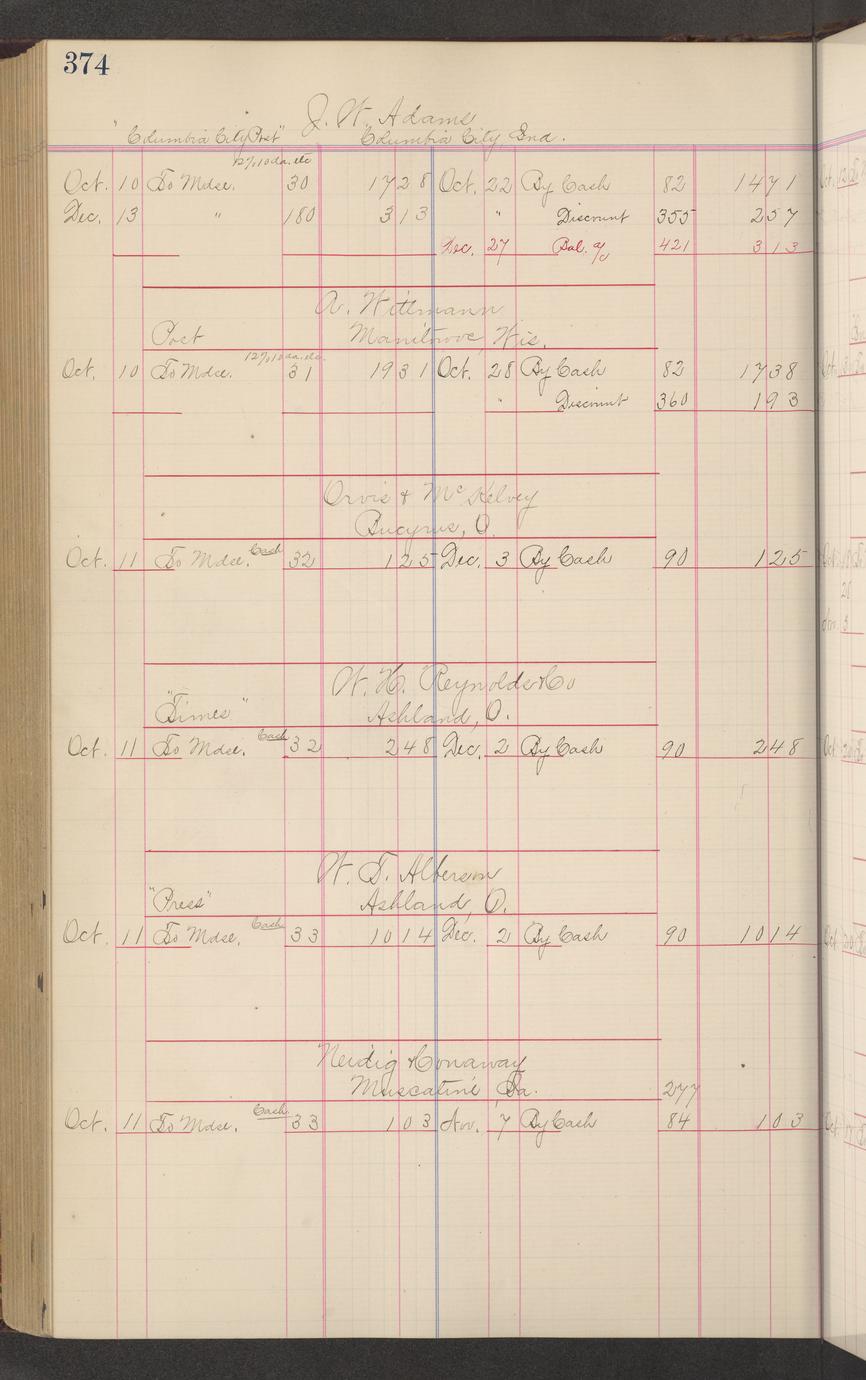 374
J. W. Adams
"Columbia City Post" Columbia City Ind.
12% 10 da. etc
Oct. 10 To Mdse. 30 1728 Oct. 22 By Cash 82 1471
Dec. 13 " 180 313 " Discount 355 257
Dec. 27 Bal. a/c 421 313
A. Wittmann
Post Manitowoc, Wis.
12% 10 da. etc.
Oct. 10 To Mdse. 31 1931 Oct. 28 By Cash 82 1738
" Discount 360 193
Orvis & McKelvey
Bucyrus, O.
Oct. 11 To Mdse. Cash 32 125 Dec. 3 By Cash 90 125
W. H. Reynolds & Co
"Times" Ashland, O.
Oct. 11 To Mdse. Cash 32 248 Dec. 2 By Cash 90 248
W. T. Alberson
"Press" Ashland, O.
Oct. 11 To Mdse. Cash 33 1014 Dec. 2 By Cash 90 1014
Neidig & Conaway
Muscatine, Ia. 277
Oct. 11 To Mdse. Cash 33 103 Nov. 7 By Cash 84 103